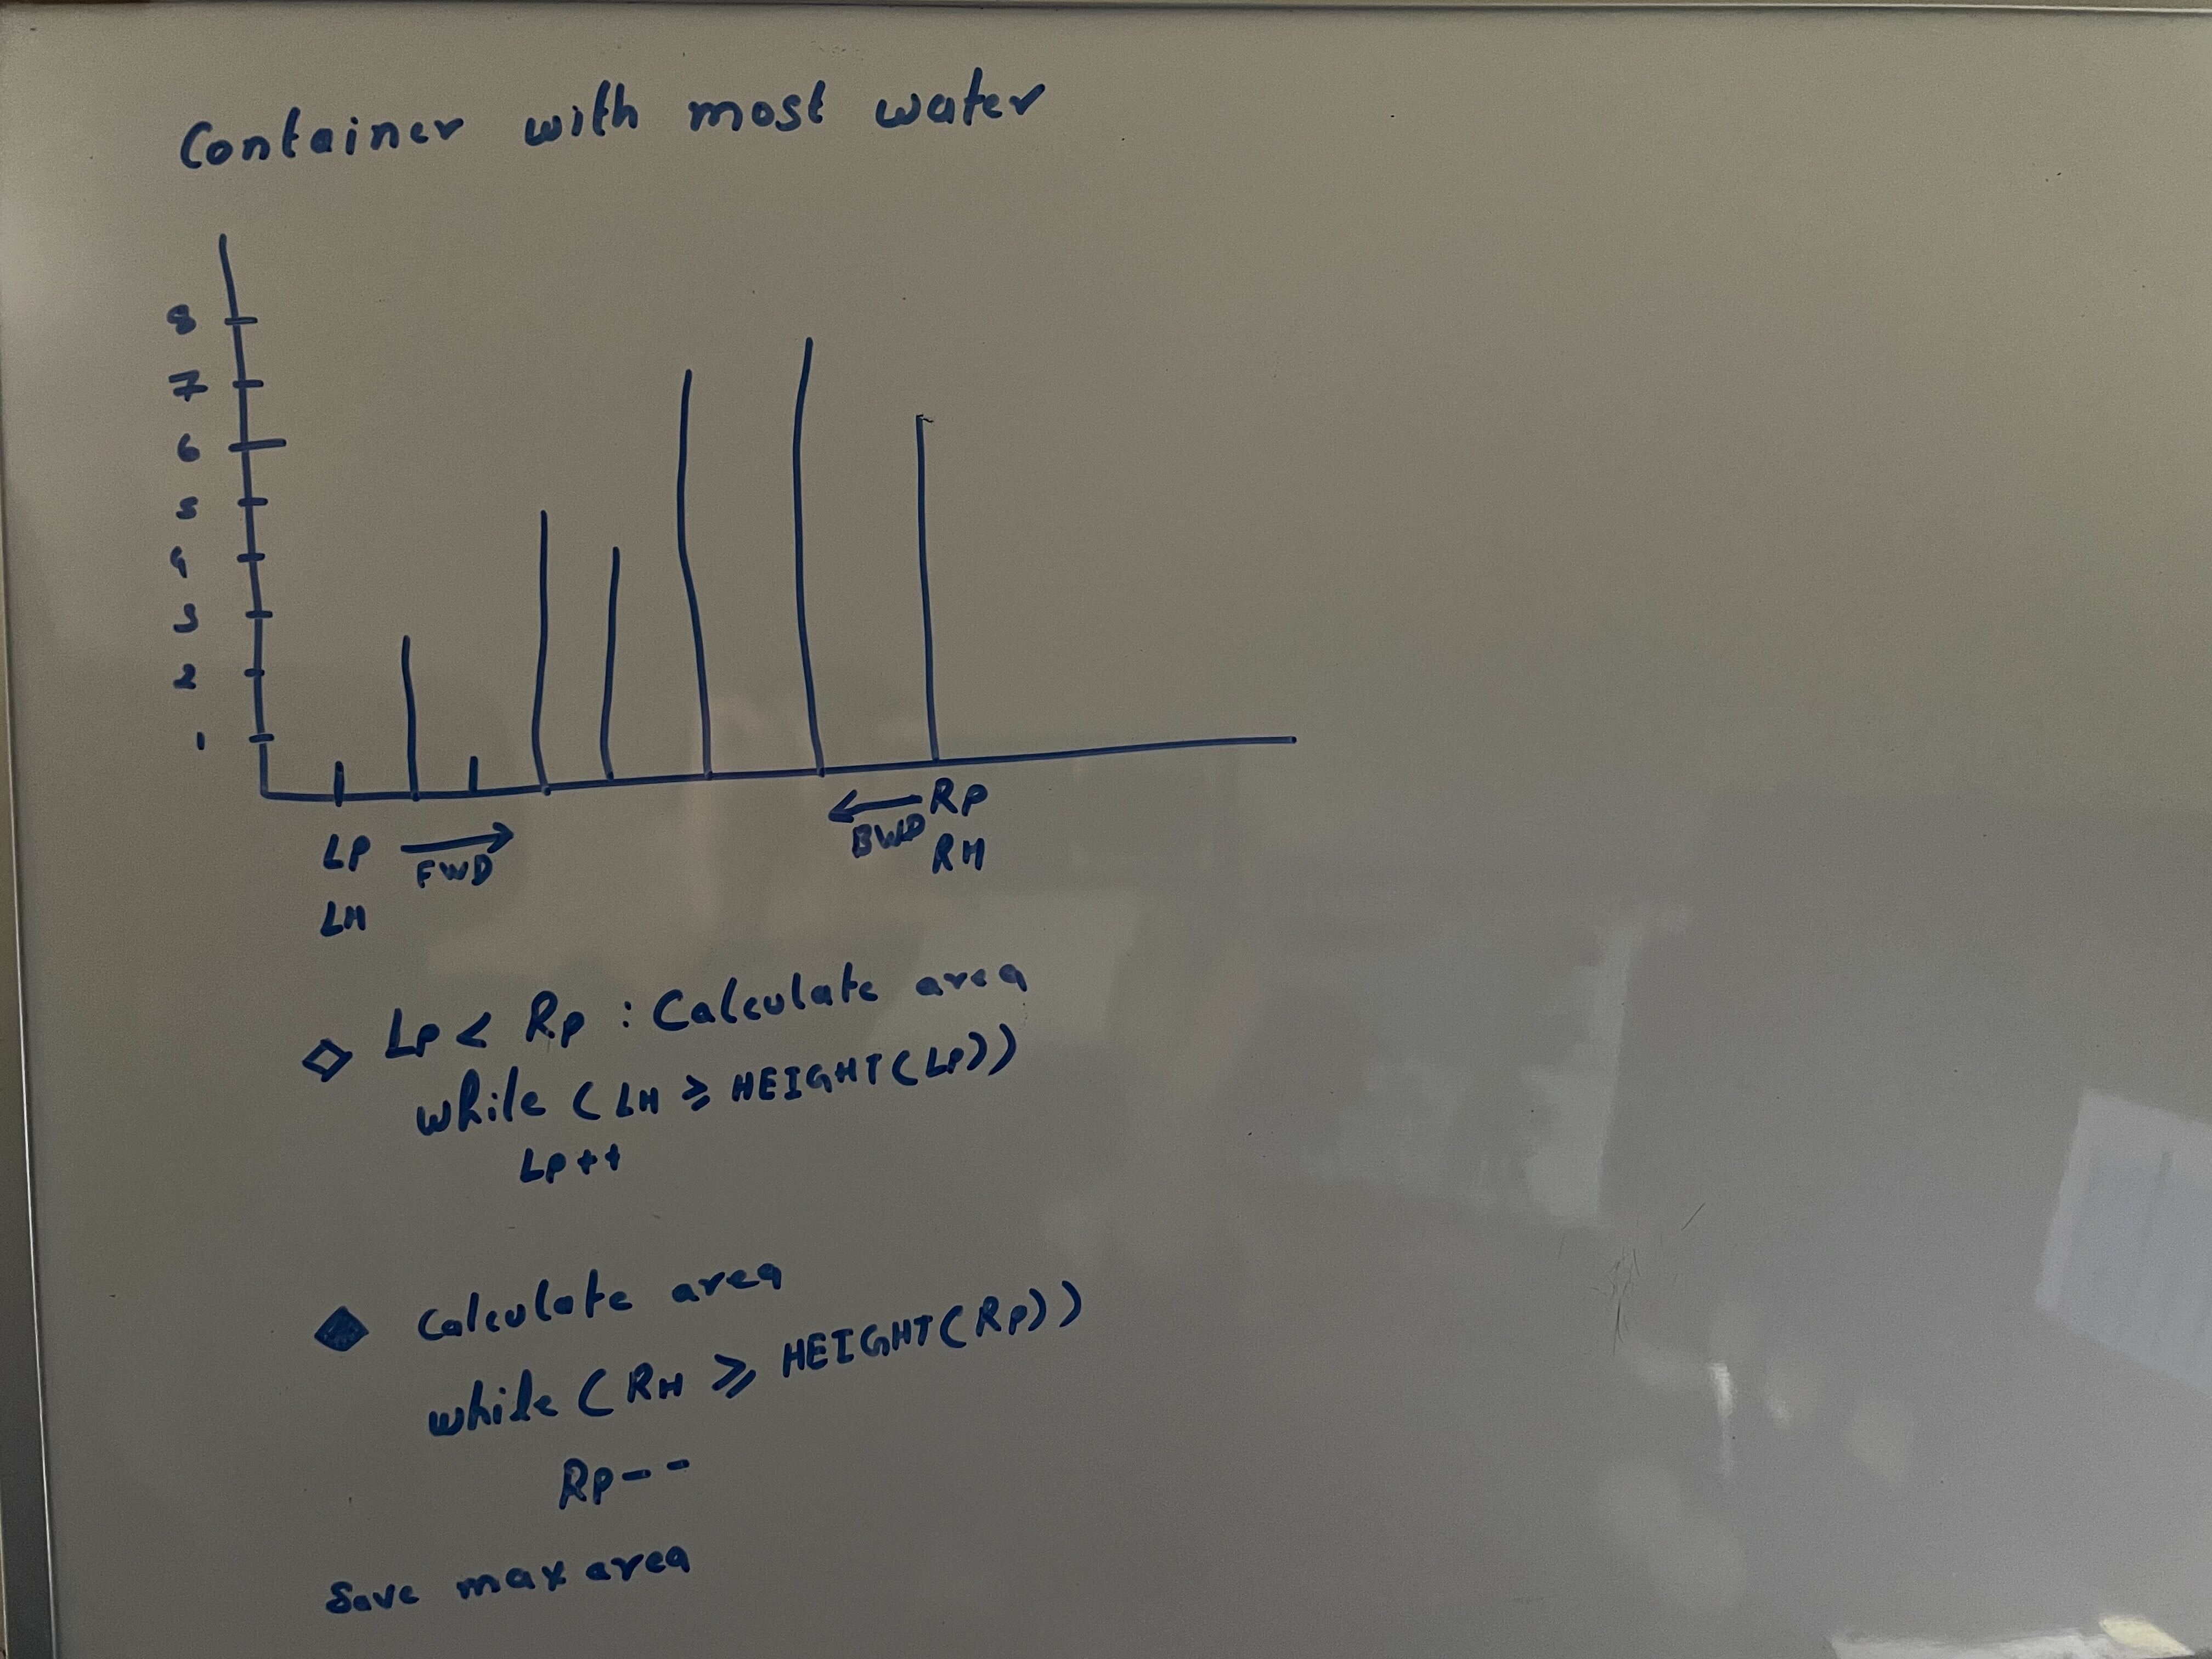 Container with most water
8
7
6
5
4
3
2
1
LP FWD BWD RP
LH RH
LP < RP : Calculate area
while (LH ≥ HEIGHT(LP))
LP++
Calculate area
while (RH ≥ HEIGHT(RP))
RP--
Save max area